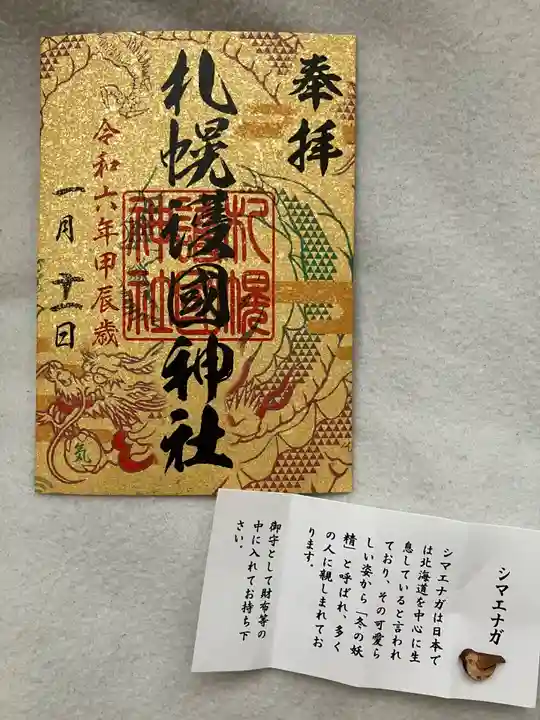 奉拝
札幌護國神社
札幌
護國
神社
令和六年甲辰歳
一月十一日
気
シマエナガ
シマエナガは日本で
は北海道を中心に生
息していると言われ
ており、その可愛ら
しい姿から「冬の妖
精」と呼ばれ、多く
の人に親しまれてお
ります。
御守として財布等の
中に入れてお持ち下
さい。